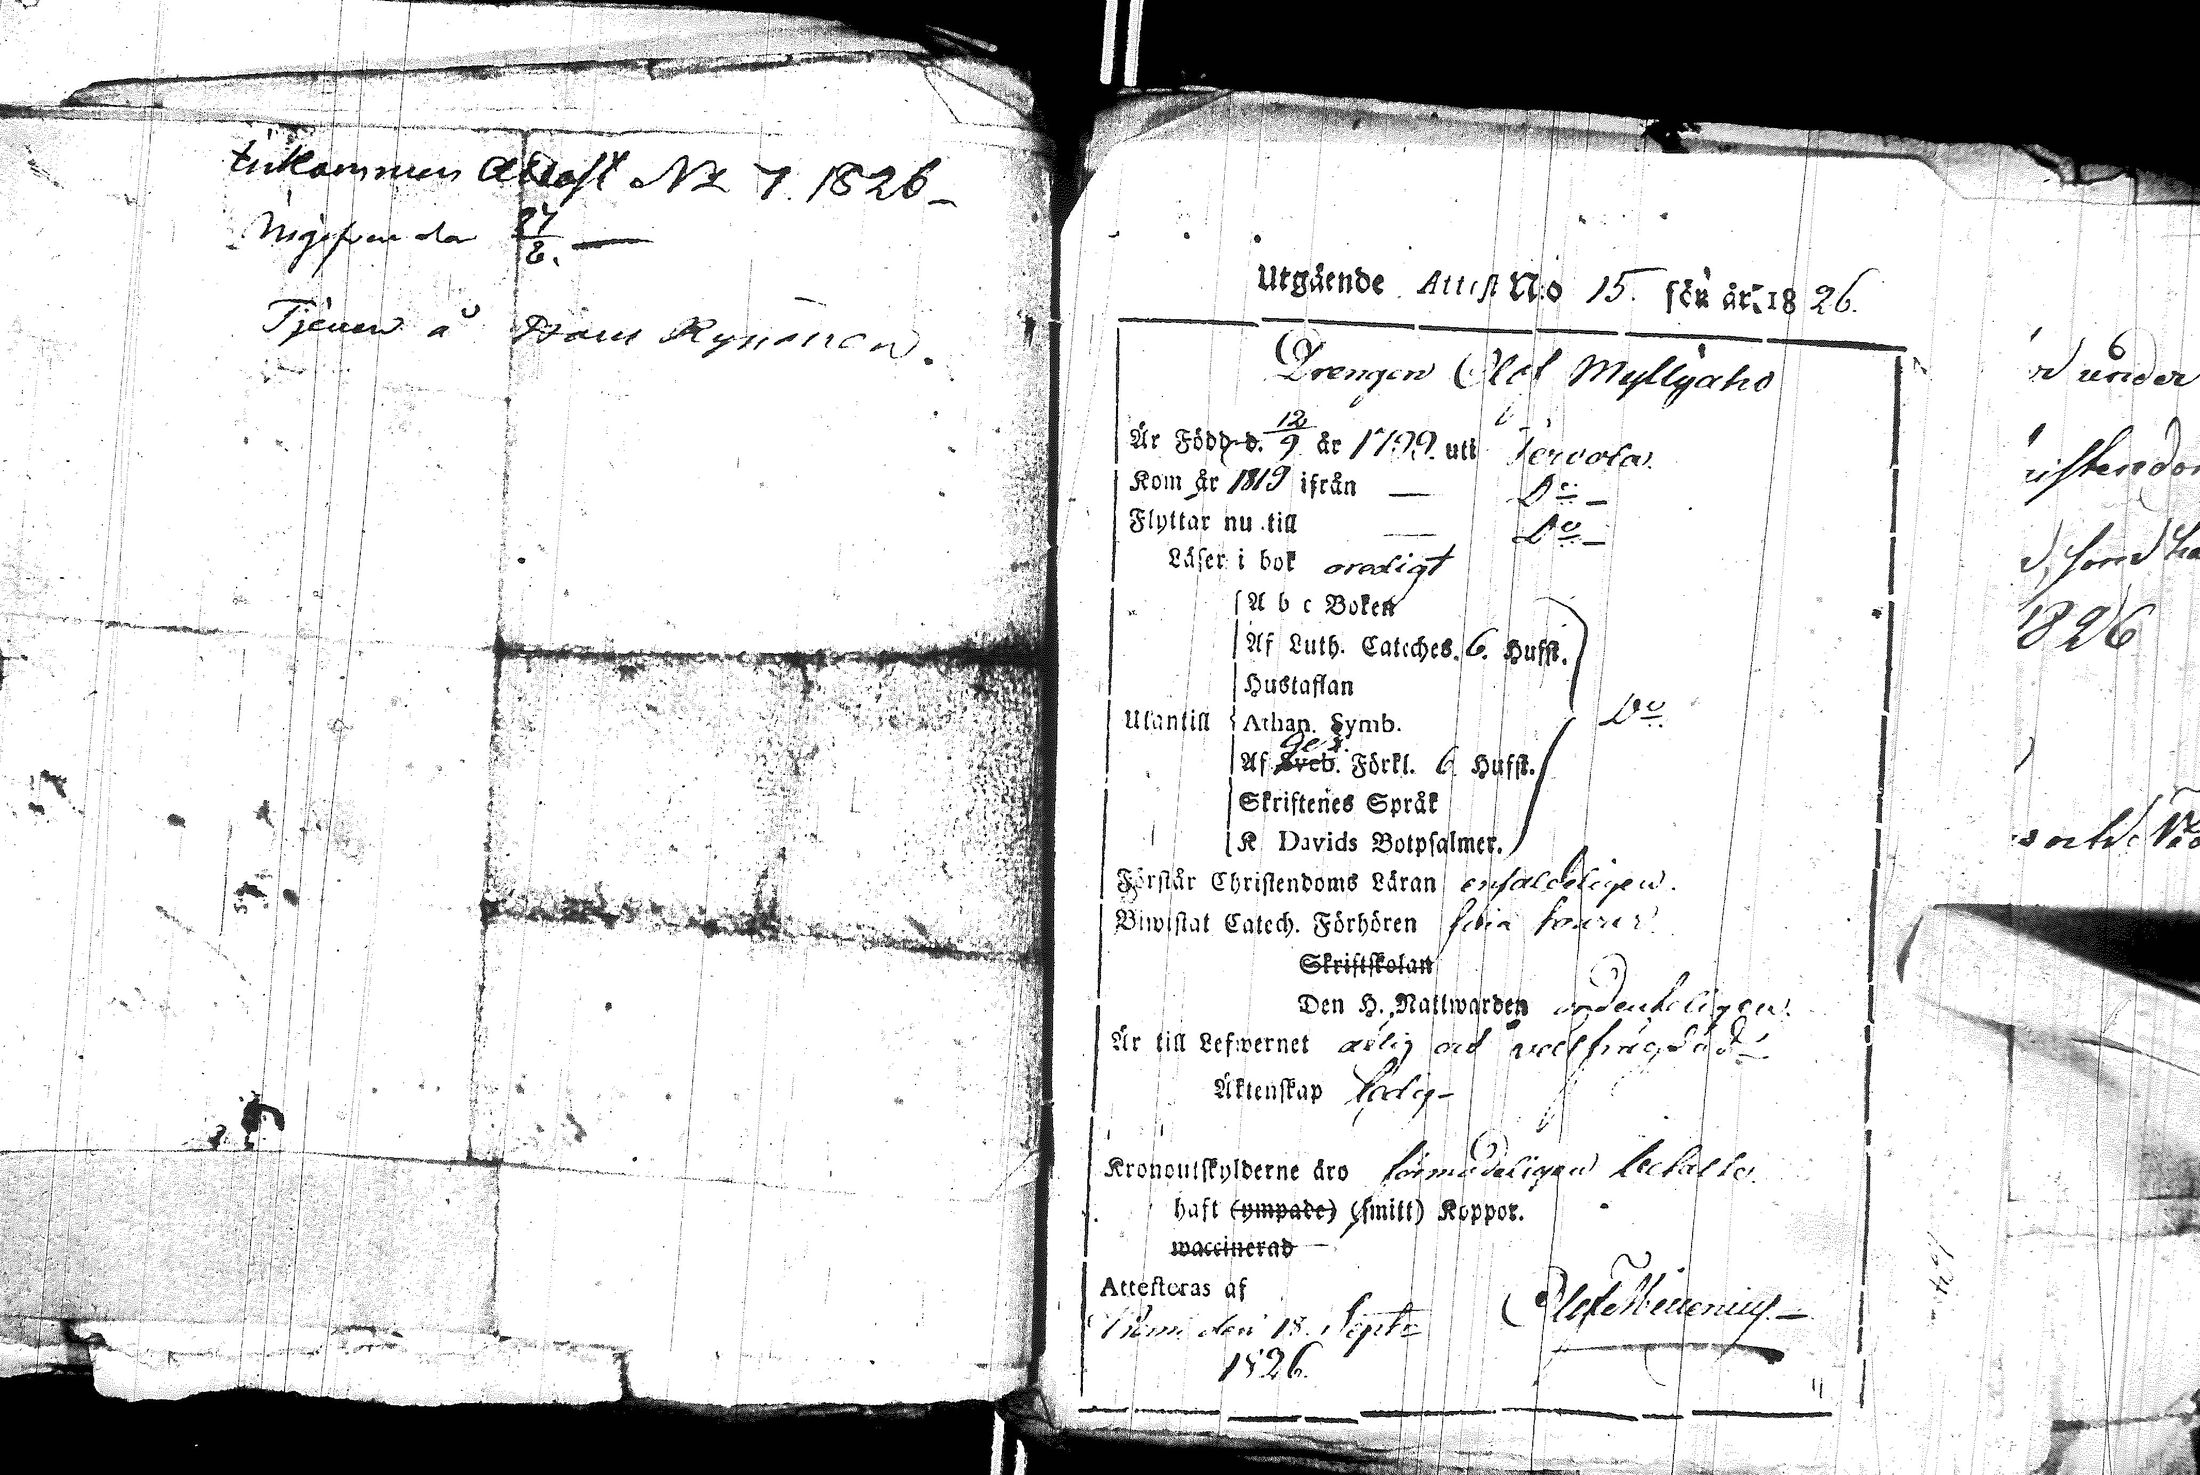 Inkommen Attest No 7. 1826
Uigifven den 27/8.
Tjenar å
Utgående Attest N:o 15. för år 1826.
Drengen Olof Myllyaho
Är Född d. 12/9 år 1799. uti Tervola
Kom år 1819 ifrån — Do —
Flyttar nu till — Do —
Läser i bok oredigt
A b c Boken
Af Luth. Cateches. 6. Hufst.
Hustaflan
Utantill Athan. Symb. Do
Af Sveb. Förkl. 6 Hufst.
Skriftenes Språk
K Davids Botpsalmer.
Förstår Christendoms Läran enfaldeligen.
Biwistat Catech. Förhören
Skriftskolan
Den H. Nattwarden ordenteligen
Är till Lefwernet ärlig och välfrägdad
Äktenskap ledig
Kronoutskylderne äro förmodeligen betalte
haft (ympade) (smitt) Koppor.
waccinerad
Attesteras af
Kemi den 18. Septr
1826.
d under
1826